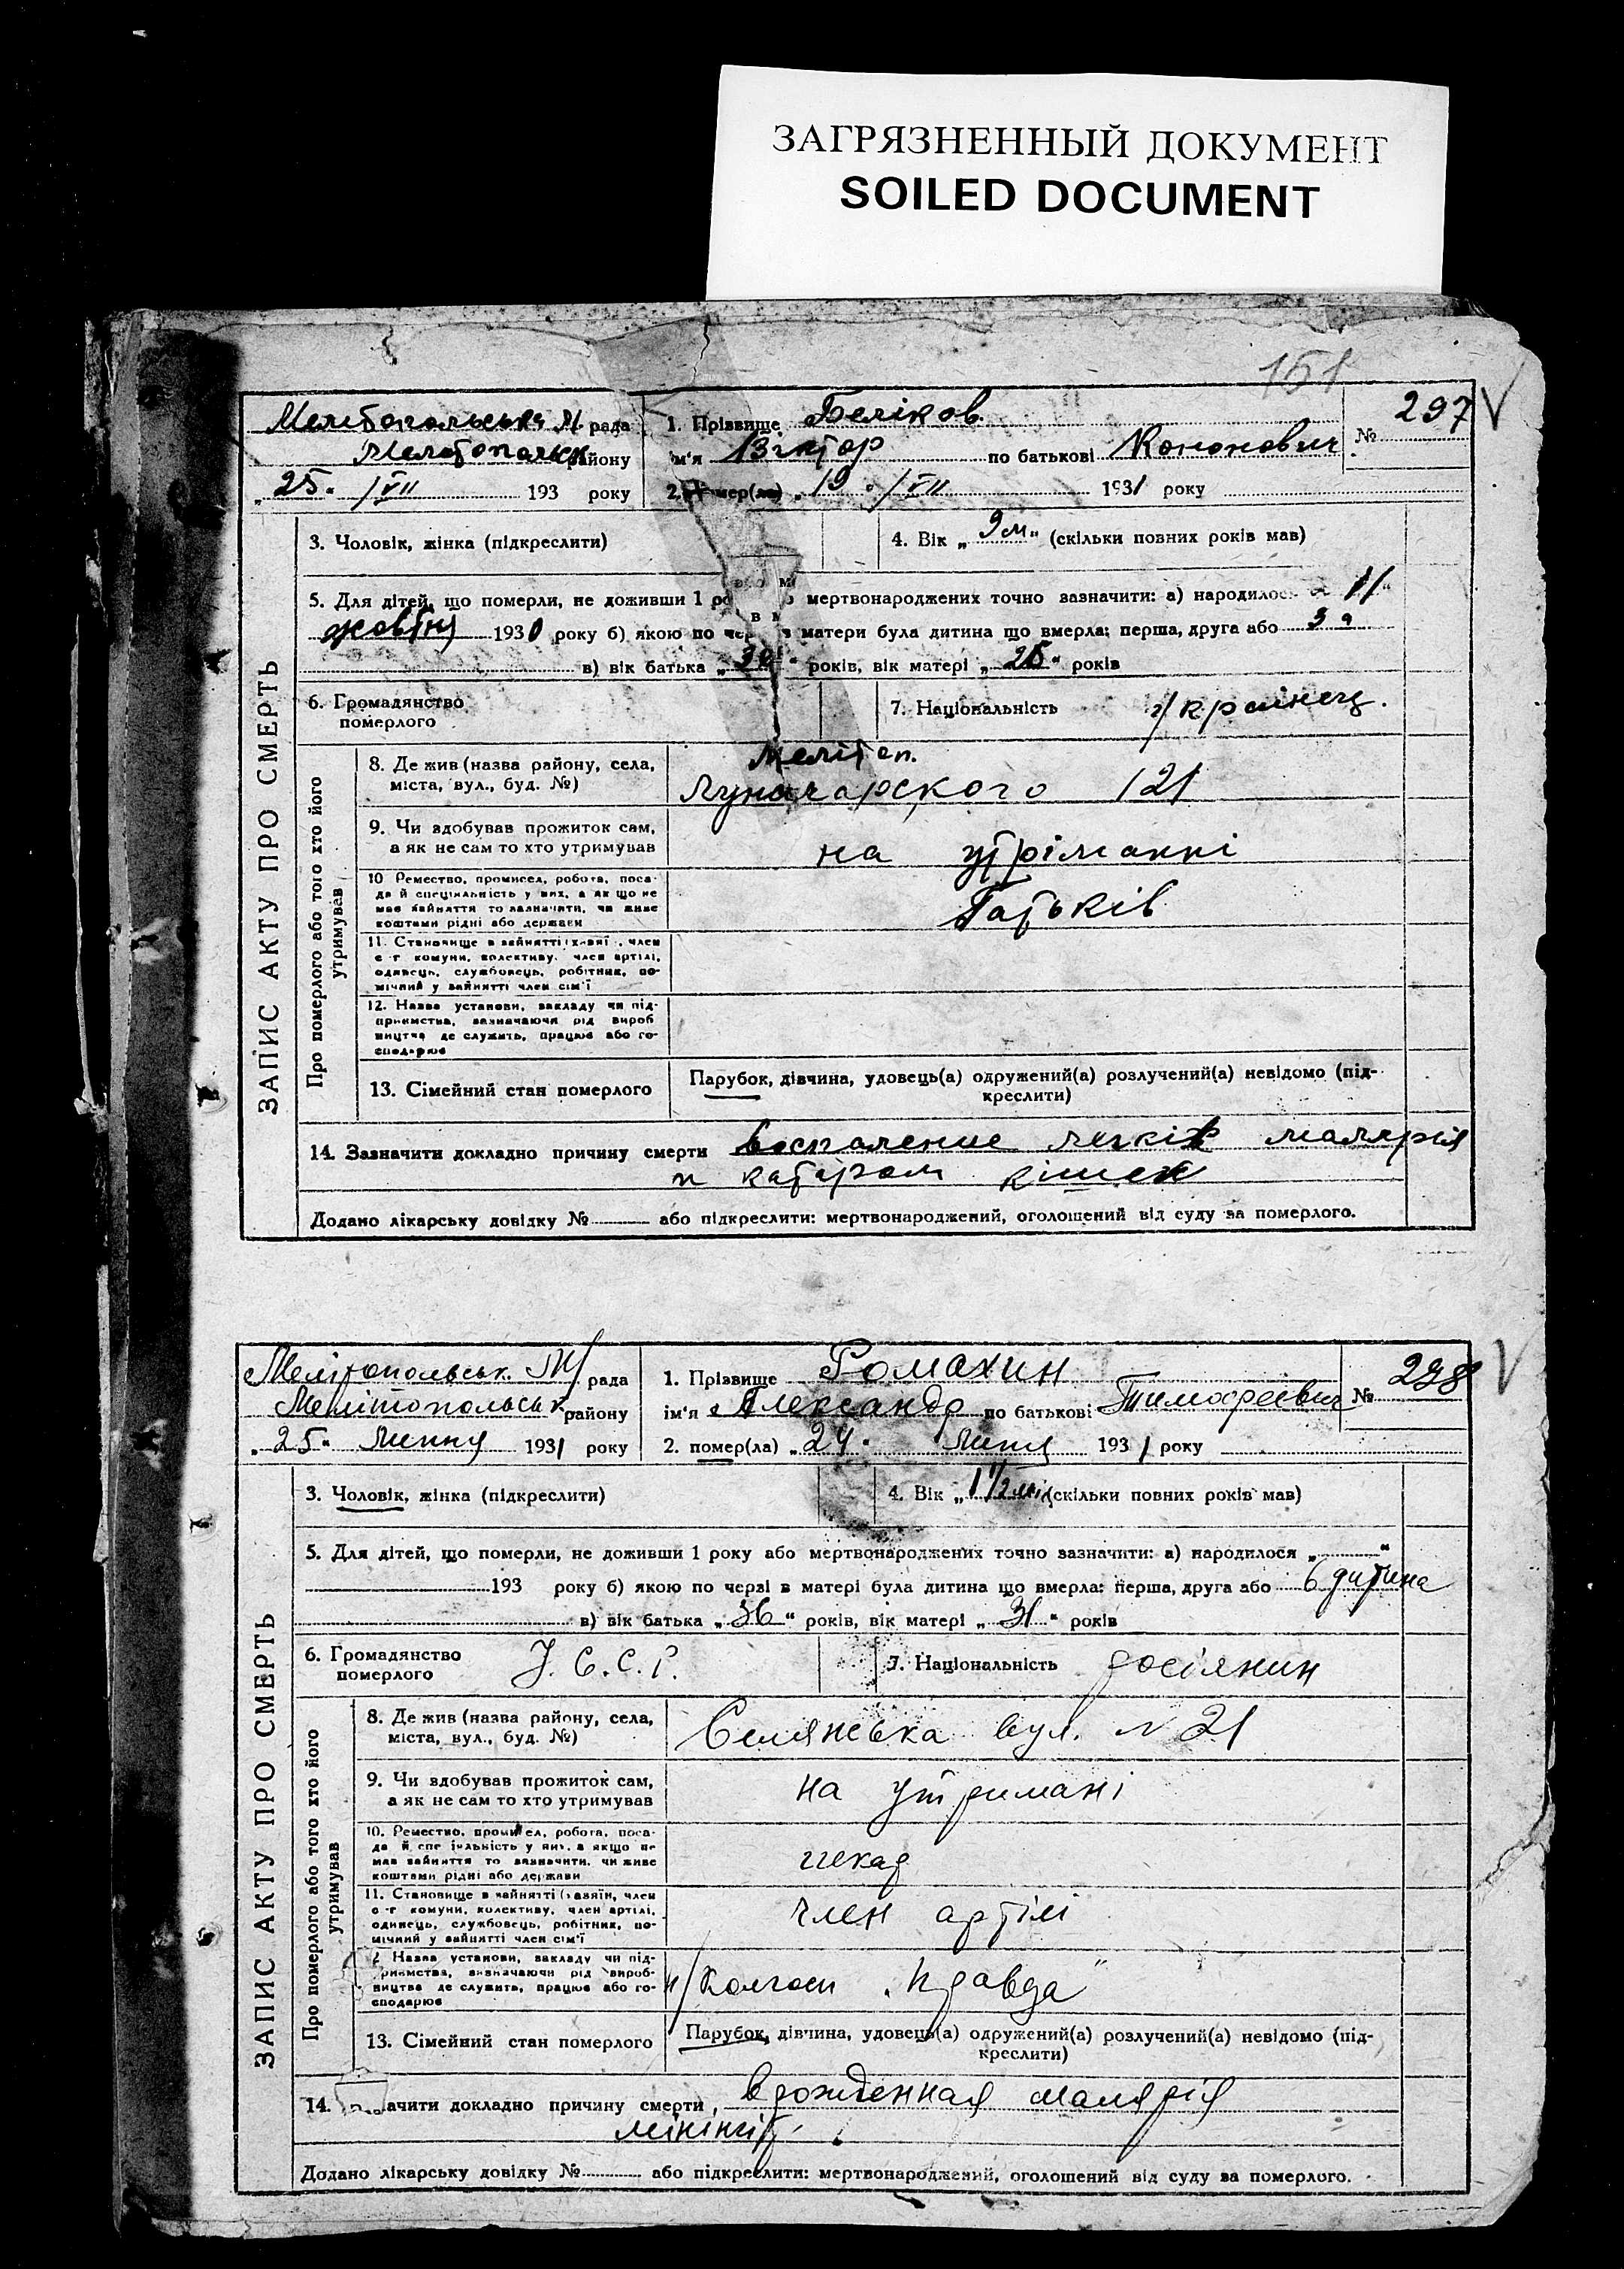 ЗАГРЯЗНЕННЫЙ ДОКУМЕНТ
SOILED DOCUMENT
151
Мелітопольська М. рада
Мелітопольськ району
„25“ /VII 193 року
1. Прізвище Беліков
ім'я Віктор по батькові Кононович
№ 297
2. Помер(ла) „19“ /VII 1931 року
ЗАПИС АКТУ ПРО СМЕРТЬ
3. Чоловік, жінка (підкреслити)
4. Вік „9 м“ (скільки повних років мав)
5. Для дітей, що померли, не доживши 1 мертвонароджених точно зазначити: а) народилося 11
жовтня 1930 року б) якою по матери була дитина що вмерла: перша, друга або 3а
в) вік батька „30“ років, вік матері „25“ років
6. Громадянство
померлого
7. Національність українец.
Про померлого або того хто його
утримував
8. Де жив (назва району, села,
міста, вул., буд. №)
Меліtоп.
Луначарского 121
9. Чи здобував прожиток сам,
а як не сам то хто утримував
на утріманні
10 Ремество, промисел, робота, поса-
да й спеціяльність у них, а як що не
має зайняття то зазначити, чи живе
коштами рідні або держави
Батьків
11. Становище в зайнятті член
с-г комуни, колективу, член артілі,
одинець, службовець, робітник, по-
мічний у зайнятті член сім'ї
12. Назва установи, закладу чи під-
приємства, зазначаючи рід вироб
ництва де служить, працює або го-
сподарює
13. Сімейний стан померлого
Парубок, дівчина, удовець(а) одружений(а) розлучений(а) невідомо (під-
креслити)
14. Зазначити докладно причину смерти воспаление легків малярія
и катаром кішек
Додано лікарську довідку № або підкреслити: мертвонароджений, оголошений від суду за померлого.
Мелітопольськ. М/ рада
Мелітопольськ району
„25“ липня 1931 року
1. Прізвище Ромахин
ім'я Александр по батькові Тимофеевич
№ 298
2. помер(ла) „24“ липня 1931 року
ЗАПИС АКТУ ПРО СМЕРТЬ
3. Чоловік, жінка (підкреслити)
4. Вік „1 1/2 міс (скільки повних років мав)
5. Для дітей, що померли, не доживши 1 року або мертвонароджених точно зазначити: а) народилося „ “
193 року б) якою по черзі в матері була дитина що вмерла: перша, друга або 6 дитина
в) вік батька „36“ років, вік матері „31“ років
6. Громадянство
померлого
У. С. С. Р.
7. Національність росіянин
Про померлого або того хто його
утримував
8. Де жив (назва району, села,
міста, вул., буд. №)
Селянська вул. N 21
9. Чи здобував прожиток сам,
а як не сам то хто утримував
на утримані
10. Ремество, промисел, робота, поса-
да й спеціяльність у них, а якщо не
має зайняття то зазначити, чи живе
коштами рідні або держави
пекар
11. Становище в зайнятті (хазяїн, член
с-г комуни, колективу, член артілі,
одинець, службовець, робітник, по-
мічний у зайнятті член сім'ї
член артілі
Назва установи, закладу чи під-
приємства, визначаючи рід вироб-
ництва де служить, працює або го-
сподарює
Колгосп „Правда“
13. Сімейний стан померлого
Парубок, дівчина, удовець(а) одружений(а) розлучений(а) невідомо (під-
креслити)
14. зачити докладно причину смерти, врожденная малярія
мінінгіт.
Додано лікарську довідку № або підкреслити: мертвонароджений, оголошений від суду за померлого.